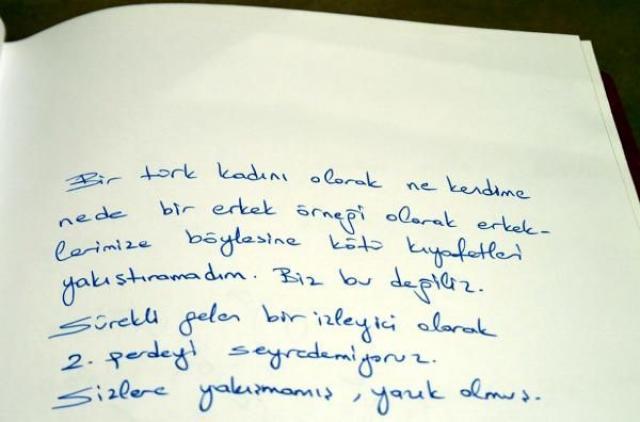 Bir türk kadını olarak ne kendime
nede bir erkek örneği olarak erkek-
lerimize böylesine kötü kıyafetleri
yakıştıramadım. Biz bu değiliz.
Sürekli gelen bir izleyici olarak
2. perdeyi seyredemiyoruz.
Sizlere yakışmamış, yazık olmuş.